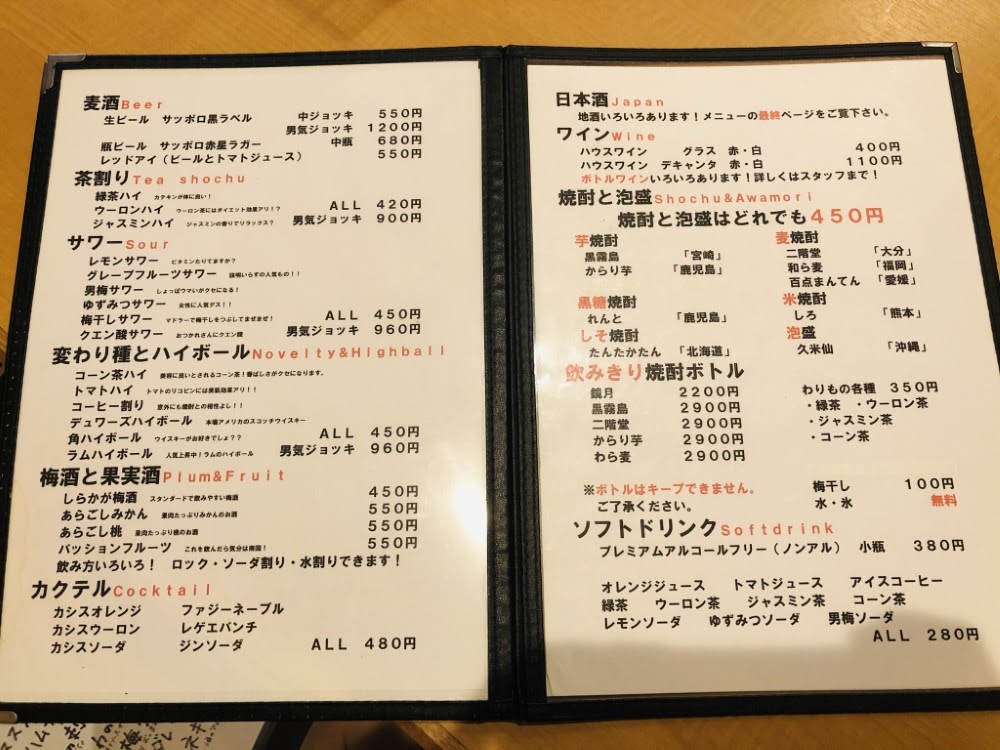 麦酒Beer
生ビール　サッポロ黒ラベル　中ジョッキ　５５０円
男気ジョッキ　１２００円
瓶ビール　サッポロ赤星ラガー　中瓶　６８０円
レッドアイ（ビールとトマトジュース）　５５０円
茶割りTea shochu
緑茶ハイ　カテキンが体に良い！
ウーロンハイ　ウーロン茶にはダイエット効果アリ！？　ＡＬＬ　４２０円
ジャスミンハイ　ジャスミンの香りでリラックス？　男気ジョッキ　９００円
サワーSour
レモンサワー　ビタミンたりてますか？
グレープフルーツサワー　説明いらずの人気もの！！
男梅サワー　しょっぱウマいがクセになる！
ゆずみつサワー　女性に人気デス！！
梅干しサワー　マドラーで梅干しをつぶしてまぜまぜ！　ＡＬＬ　４５０円
クエン酸サワー　おつかれさんにクエン酸　男気ジョッキ　９６０円
変わり種とハイボールNovelty&Highball
コーン茶ハイ　美容に良いとされるコーン茶！香ばしさがクセになります。
トマトハイ　トマトのリコピンには美肌効果アリ！！
コーヒー割り　意外にも焼酎との相性よし！！
デュワーズハイボール　本場アメリカのスコッチウイスキー
角ハイボール　ウイスキーがお好きでしょ？？　ＡＬＬ　４５０円
ラムハイボール　人気上昇中！ラムのハイボール　男気ジョッキ　９６０円
梅酒と果実酒Plum&Fruit
しらかが梅酒　スタンダードで飲みやすい梅酒　４５０円
あらごしみかん　果肉たっぷりみかんのお酒　５５０円
あらごし桃　果肉たっぷり桃のお酒　５５０円
パッションフルーツ　これを飲んだら気分は南国！　５５０円
飲み方いろいろ！　ロック・ソーダ割り・水割りできます！
カクテルCocktail
カシスオレンジ　ファジーネーブル
カシスウーロン　レゲエパンチ
カシスソーダ　ジンソーダ　ＡＬＬ　４８０円
日本酒Japan
地酒いろいろあります！メニューの最終ページをご覧下さい。
ワインWine
ハウスワイン　グラス　赤・白　４００円
ハウスワイン　デキャンタ　赤・白　１１００円
ボトルワインいろいろあります！詳しくはスタッフまで！
焼酎と泡盛Shochu&Awamori
焼酎と泡盛はどれでも４５０円
芋焼酎
黒霧島　「宮崎」
からり芋　「鹿児島」
麦焼酎
二階堂　「大分」
和ら麦　「福岡」
百点まんてん　「愛媛」
黒糖焼酎
れんと　「鹿児島」
米焼酎
しろ　「熊本」
しそ焼酎
たんたかたん　「北海道」
泡盛
久米仙　「沖縄」
飲みきり焼酎ボトル
鏡月　２２００円
黒霧島　２９００円
二階堂　２９００円
からり芋　２９００円
わら麦　２９００円
わりもの各種　３５０円
・緑茶　・ウーロン茶
・ジャスミン茶
・コーン茶
※ボトルはキープできません。
ご了承ください。
梅干し　１００円
水・氷　無料
ソフトドリンクSoftdrink
プレミアムアルコールフリー（ノンアル）　小瓶　３８０円
オレンジジュース　トマトジュース　アイスコーヒー
緑茶　ウーロン茶　ジャスミン茶　コーン茶
レモンソーダ　ゆずみつソーダ　男梅ソーダ
ＡＬＬ　２８０円